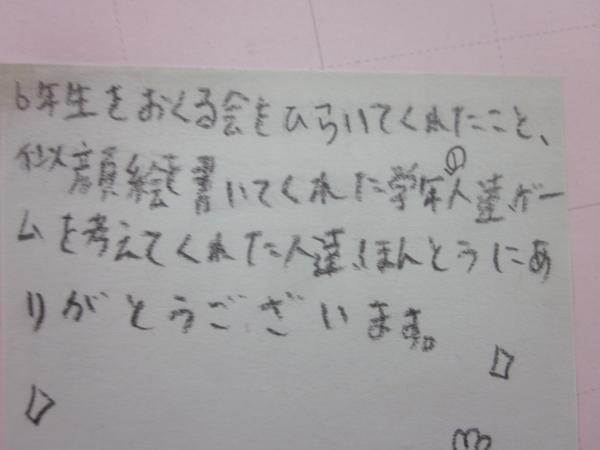 6年生をおくる会をひらいてくれたこと、
似顔絵を書いてくれた学年の人達、ゲー
ムを考えてくれた人達、ほんとうにあ
りがとうございます。